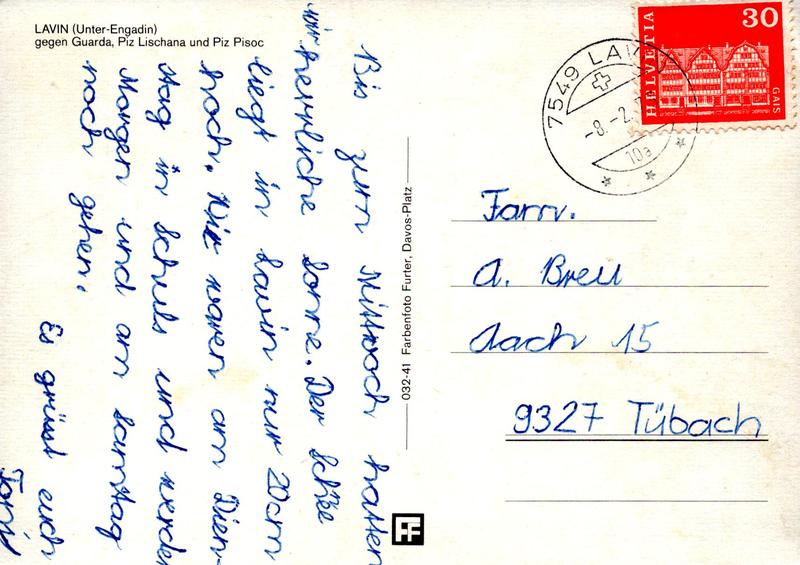 LAVIN (Unter-Engadin)
gegen Guarda, Piz Lischana und Piz Pisoc
Bis zum Mittwoch hatten
wir herrliche Sonne. Der
liegt in Lavin nur 20cm
hoch. Wir waren am Dien-
stag in Schuls und werden
Morgen und am Samstag
noch gehen.
Es grüsst euch
032-41 Farbenfoto Furter, Davos-Platz
FF
HELVETIA
30
GAIS
7549
-8.-2.
10a
Fam.
A. Breu
Aach 15
9327 Tübach